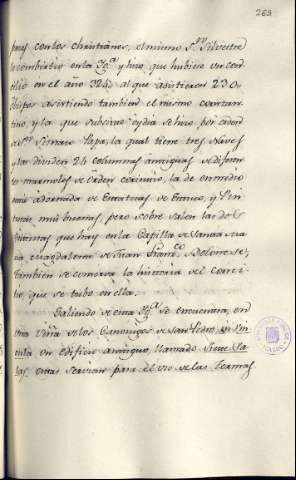 263
pues con los christianos, el mismo S.n Silvestre
la combirtió en la Yg.a y hizo que hubiese un con
cilio en el año 324 al que asistieron 230
obispos asistiendo tambien el mismo constan
tino, y la que subsiste oy dia se hizo por
S.n Simaco Papa, la qual tiene tres Naves
y las dividen 24 columnas antiguas de diferen
tes marmoles de orden corintio, la de en medio
está adornada de Estatuas de Estuco, y Pin
turas mui buenas, pero sobre salen las de
que hay en la Capilla de Santa Ma
ria Magdalena de Juan Fran.co Bolones;
tambien se conserva la historia del conci
lio, que se tubo en ella.
Saliendo de esta Yg.a se encuentra, en
una viña de los Canonigos de San Pedro, in Vin
cula un edificio antiguo, llamado Siete Sa
las estas servian para el uso de las termas